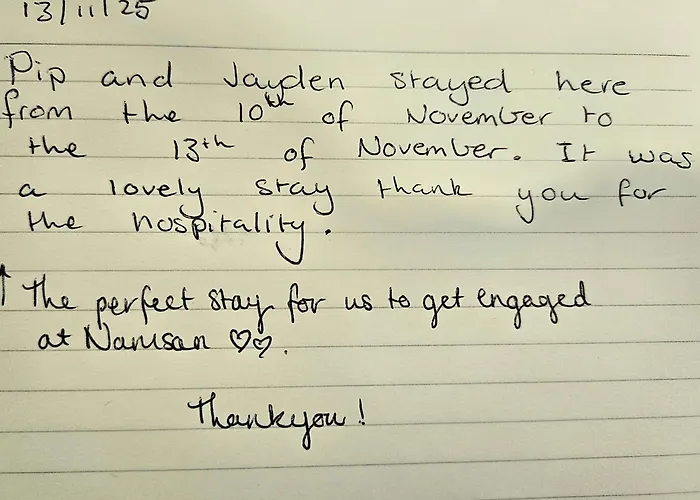 13/11/25
Pip and Jayden stayed here
from the 10th of November to
the 13th of November. It was
a lovely stay thank you for
the hospitality.
↑ The perfect stay for us to get engaged
at Namsan ♡♡.
Thankyou!